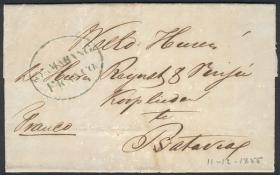 SAMARANG
FRANCO
Weled. Heeren
de Heeren Reynst & Vinju
Kooplieden
te
Franco
Batavia
11-12-1855